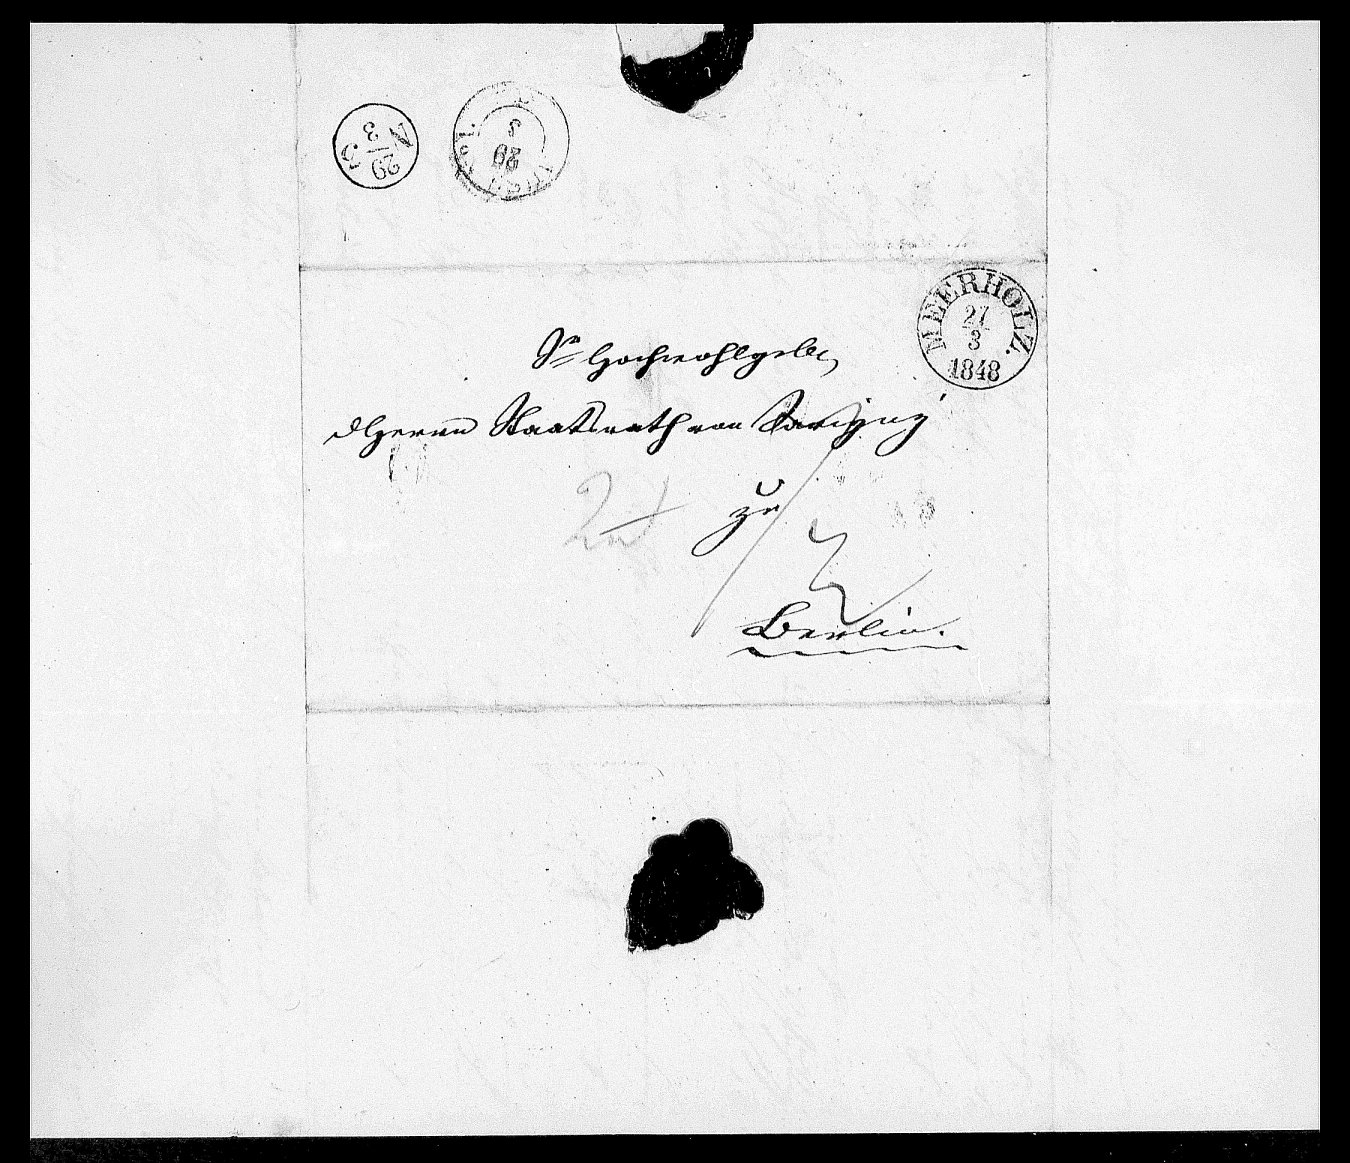 A
29
3
5
29
3
MEERHOLZ.
27
3
1848
Sr Hochwohlgeb.
dHerrn Staatsrath von Savigny
zu
Berlin.